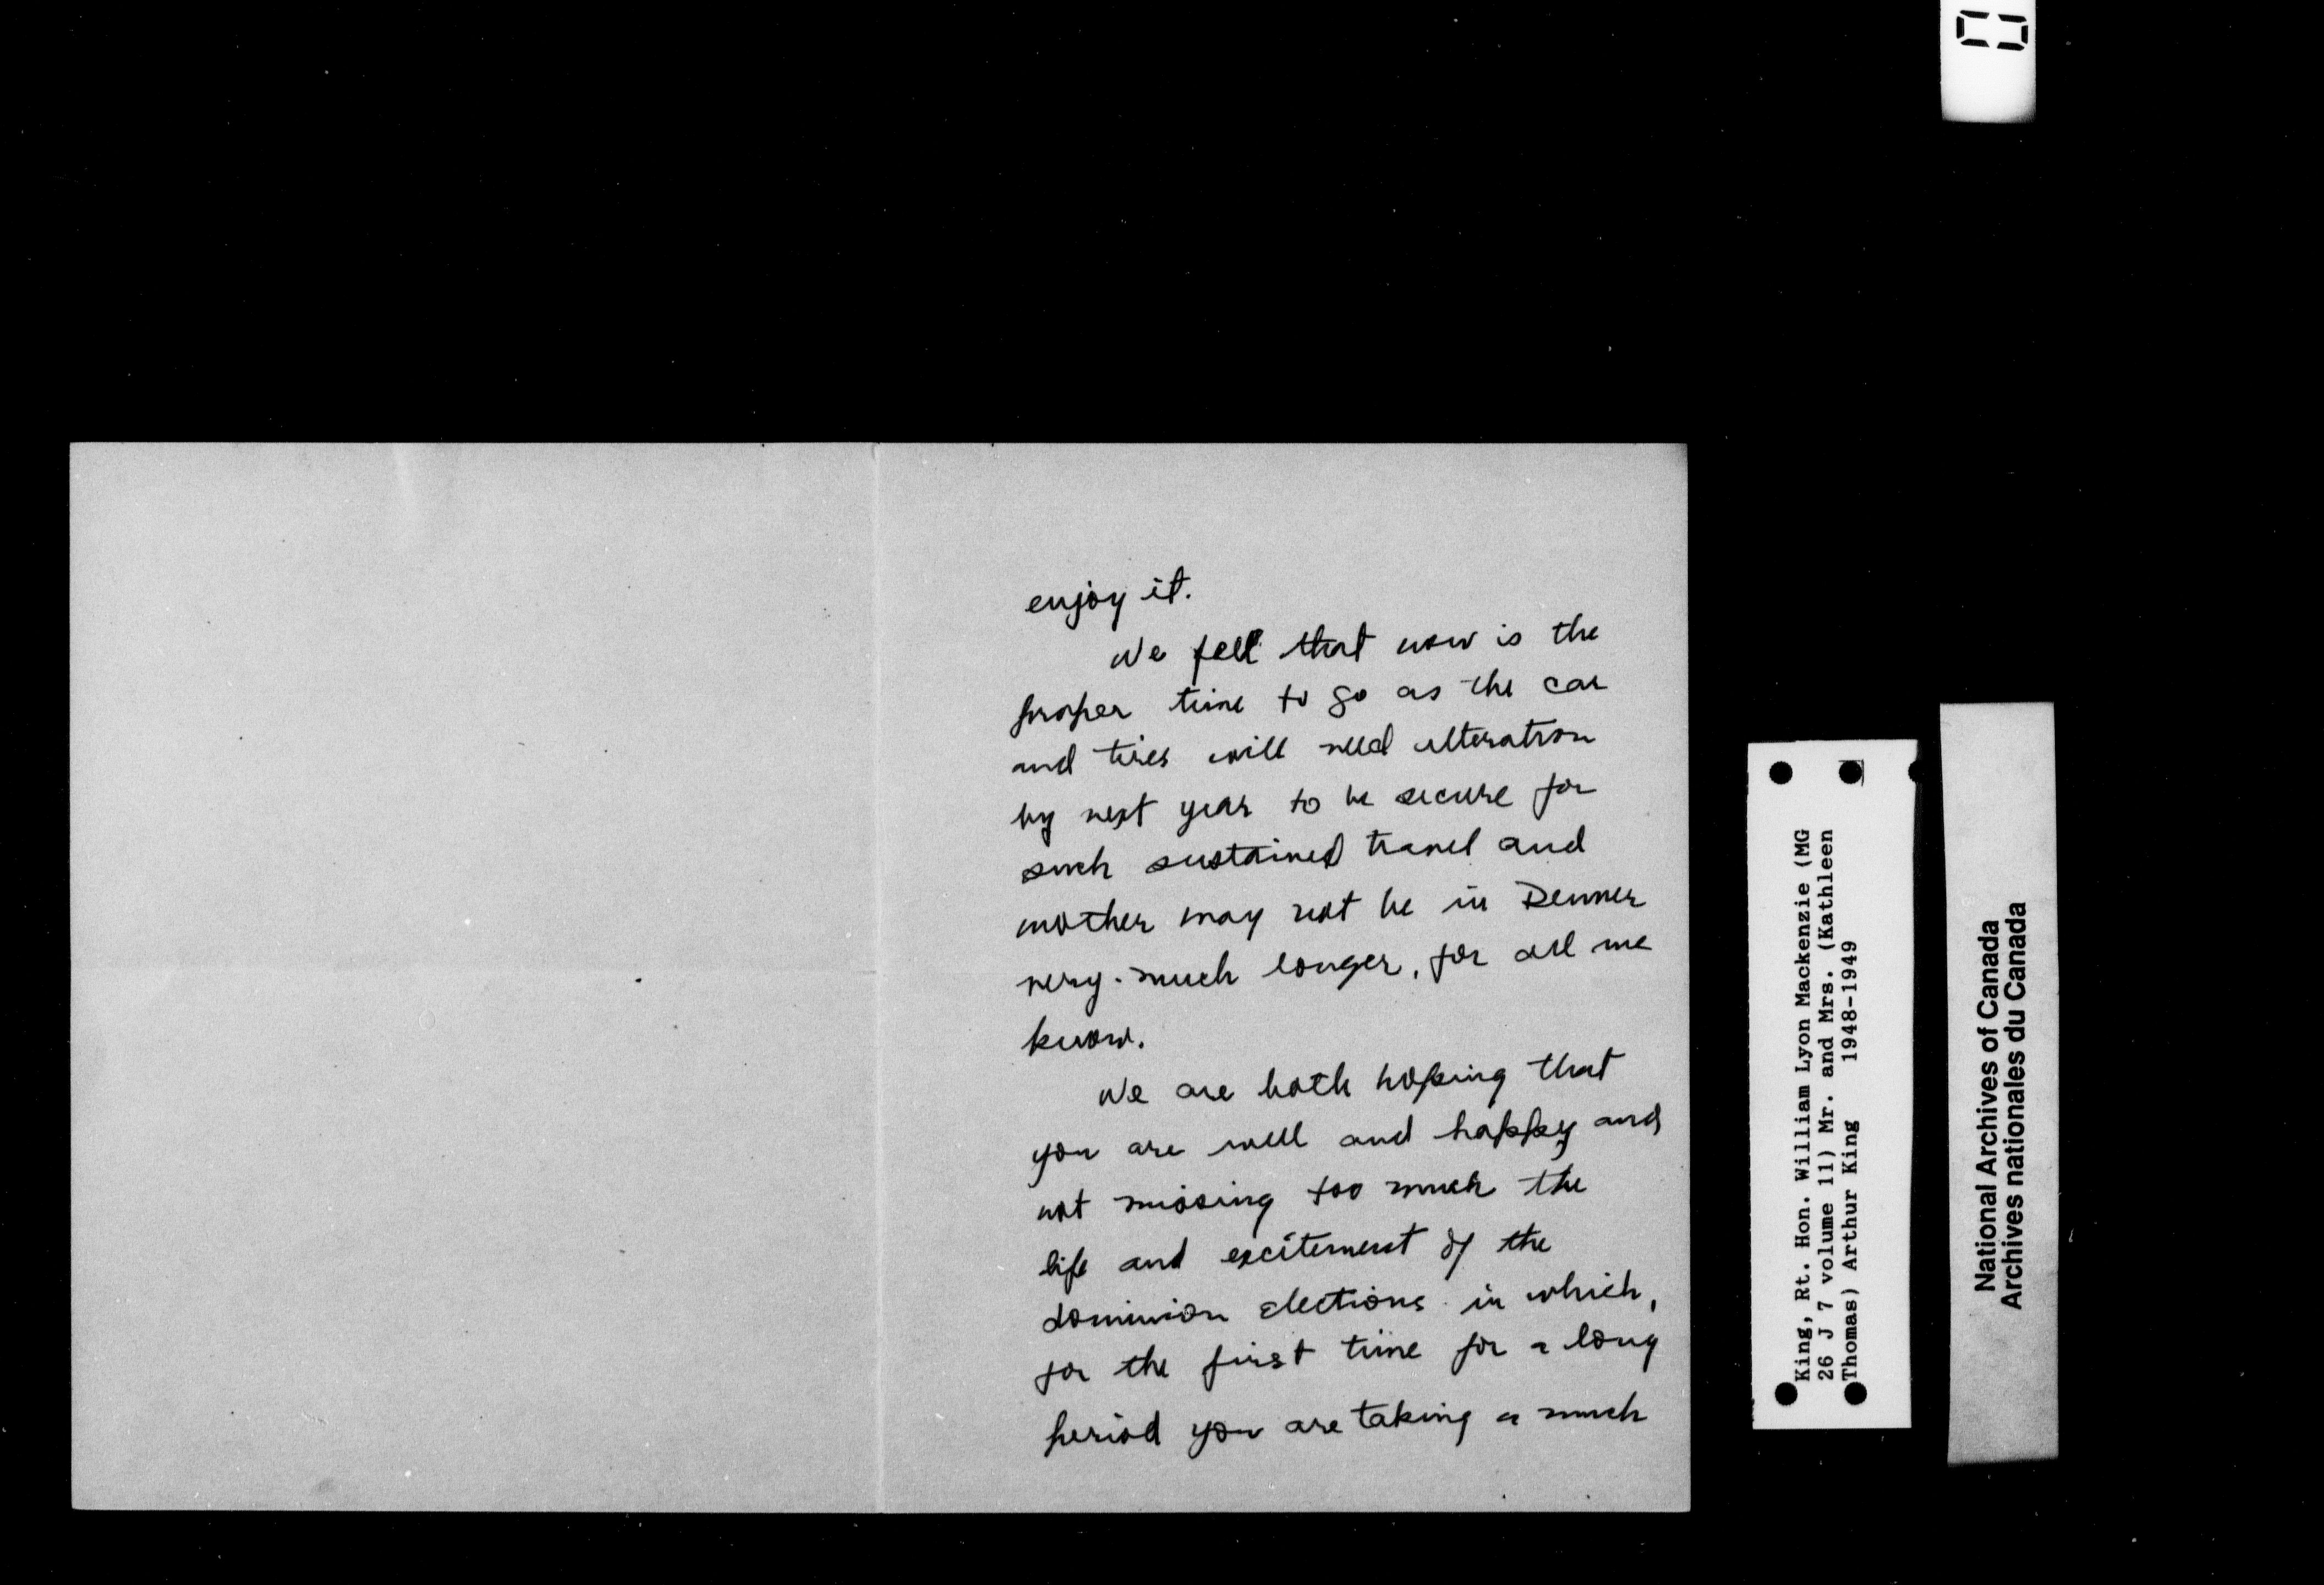 enjoy it.
We fell that now is the
proper time to go as the car
and tires will need alteration
by next year to be secure for
such sustained travel and
mother may not be in Denver
very much longer, for all we
know.
We are both hoping that
you are well and happy and
not missing too much the
life and excitement of the
dominion elections in which,
for the first time for a long
period you are taking a much
King, Rt. Hon. William Lyon Mackenzie (MG
26 J 7 volume 11) Mr. and Mrs. (Kathleen
Thomas) Arthur King 1948-1949
National Archives of Canada
Archives nationales du Canada